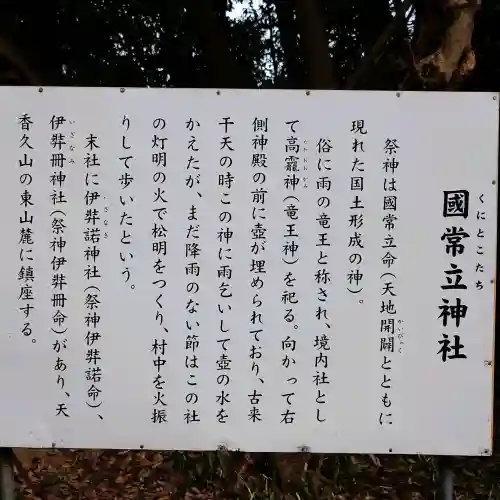 くにとこたち
國常立神社
祭神は國常立命(天地開闢とともに
かいびゃく
現れた国土形成の神)。
俗に雨の竜王と称され、境内社とし
て高龗神(竜王神)を祀る。向かって右
側神殿の前に壺が埋められており、古来
干天の時この神に雨乞いして壺の水を
かえたが、まだ降雨のない節はこの社
の灯明の火で松明をつくり、村中を火振
りして歩いたという。
末社に伊弉諾神社(祭神伊弉諾命)、
いざなぎ
伊弉冊神社(祭神伊弉冊命)があり、天
いざなみ
香久山の東山麓に鎮座する。